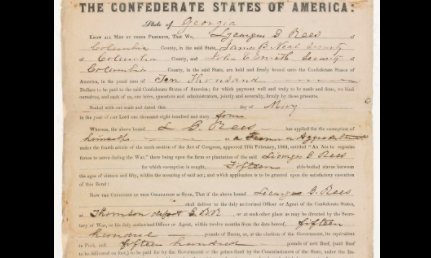 THE CONFEDERATE STATES OF AMERICA:
State of Georgia
KNOW ALL MEN BY THESE PRESENTS, That We, Lycurgus B Rees
Columbia County, in the said State, James B. Neal Security
Columbia County, and John C Smith Security
Columbia County, in the said State, are held and firmly bound unto the Confederate States of
America, in the penal sum of Ten Thousand
Dollars to be paid to the said Confederate States of America; for which payment well and truly to be made and done, we bind
ourselves, and each of us, our heirs, executors and administrators, jointly and severally, firmly by these presents.
Sealed with our seals and dated this day of May
in the year of our Lord one thousand eight hundred and sixty four
Whereas, the above bound L B. Rees has applied for the exemption of
himself
under the fourth article of the tenth section of the Act of Congress, approved 17th February, 1864, entitled "An Act to organize
forces to serve during the War," there being upon the farm or plantation of the said Lycurgus B Rees
for which exemption is sought, Fifteen able-bodied slaves between the
ages of sixteen and fifty, within the meaning of said act; and which application is to be granted upon the satisfactory execution
of this Bond:
NOW THE CONDITION OF THIS OBLIGATION IS SUCH, That if the above bound Lycurgus B. Rees
shall deliver to the duly authorized Officer or Agent of the Confederate States,
at Thomson depot or at such other place as may be directed by the Secretary
of War, to his duly authorized Officer or Agent, within twelve months from the date hereof, fifteen
hundred pounds of Bacon, or, at the election of the Government, its equivalent
in Pork, and fifteen hundred pounds of net Beef, (said Beef
to be delivered on foot,) to be paid for by the Government at the prices fixed by the Commissioners of the State, under the